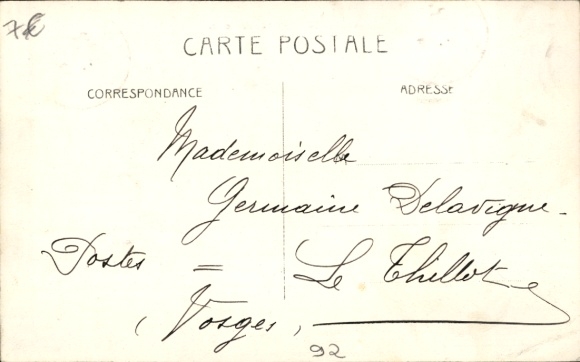 CARTE POSTALE
CORRESPONDANCE
ADRESSE
Mademoiselle
Germaine Delavigne -
Postes = Le Thillot
(Vosges)
92